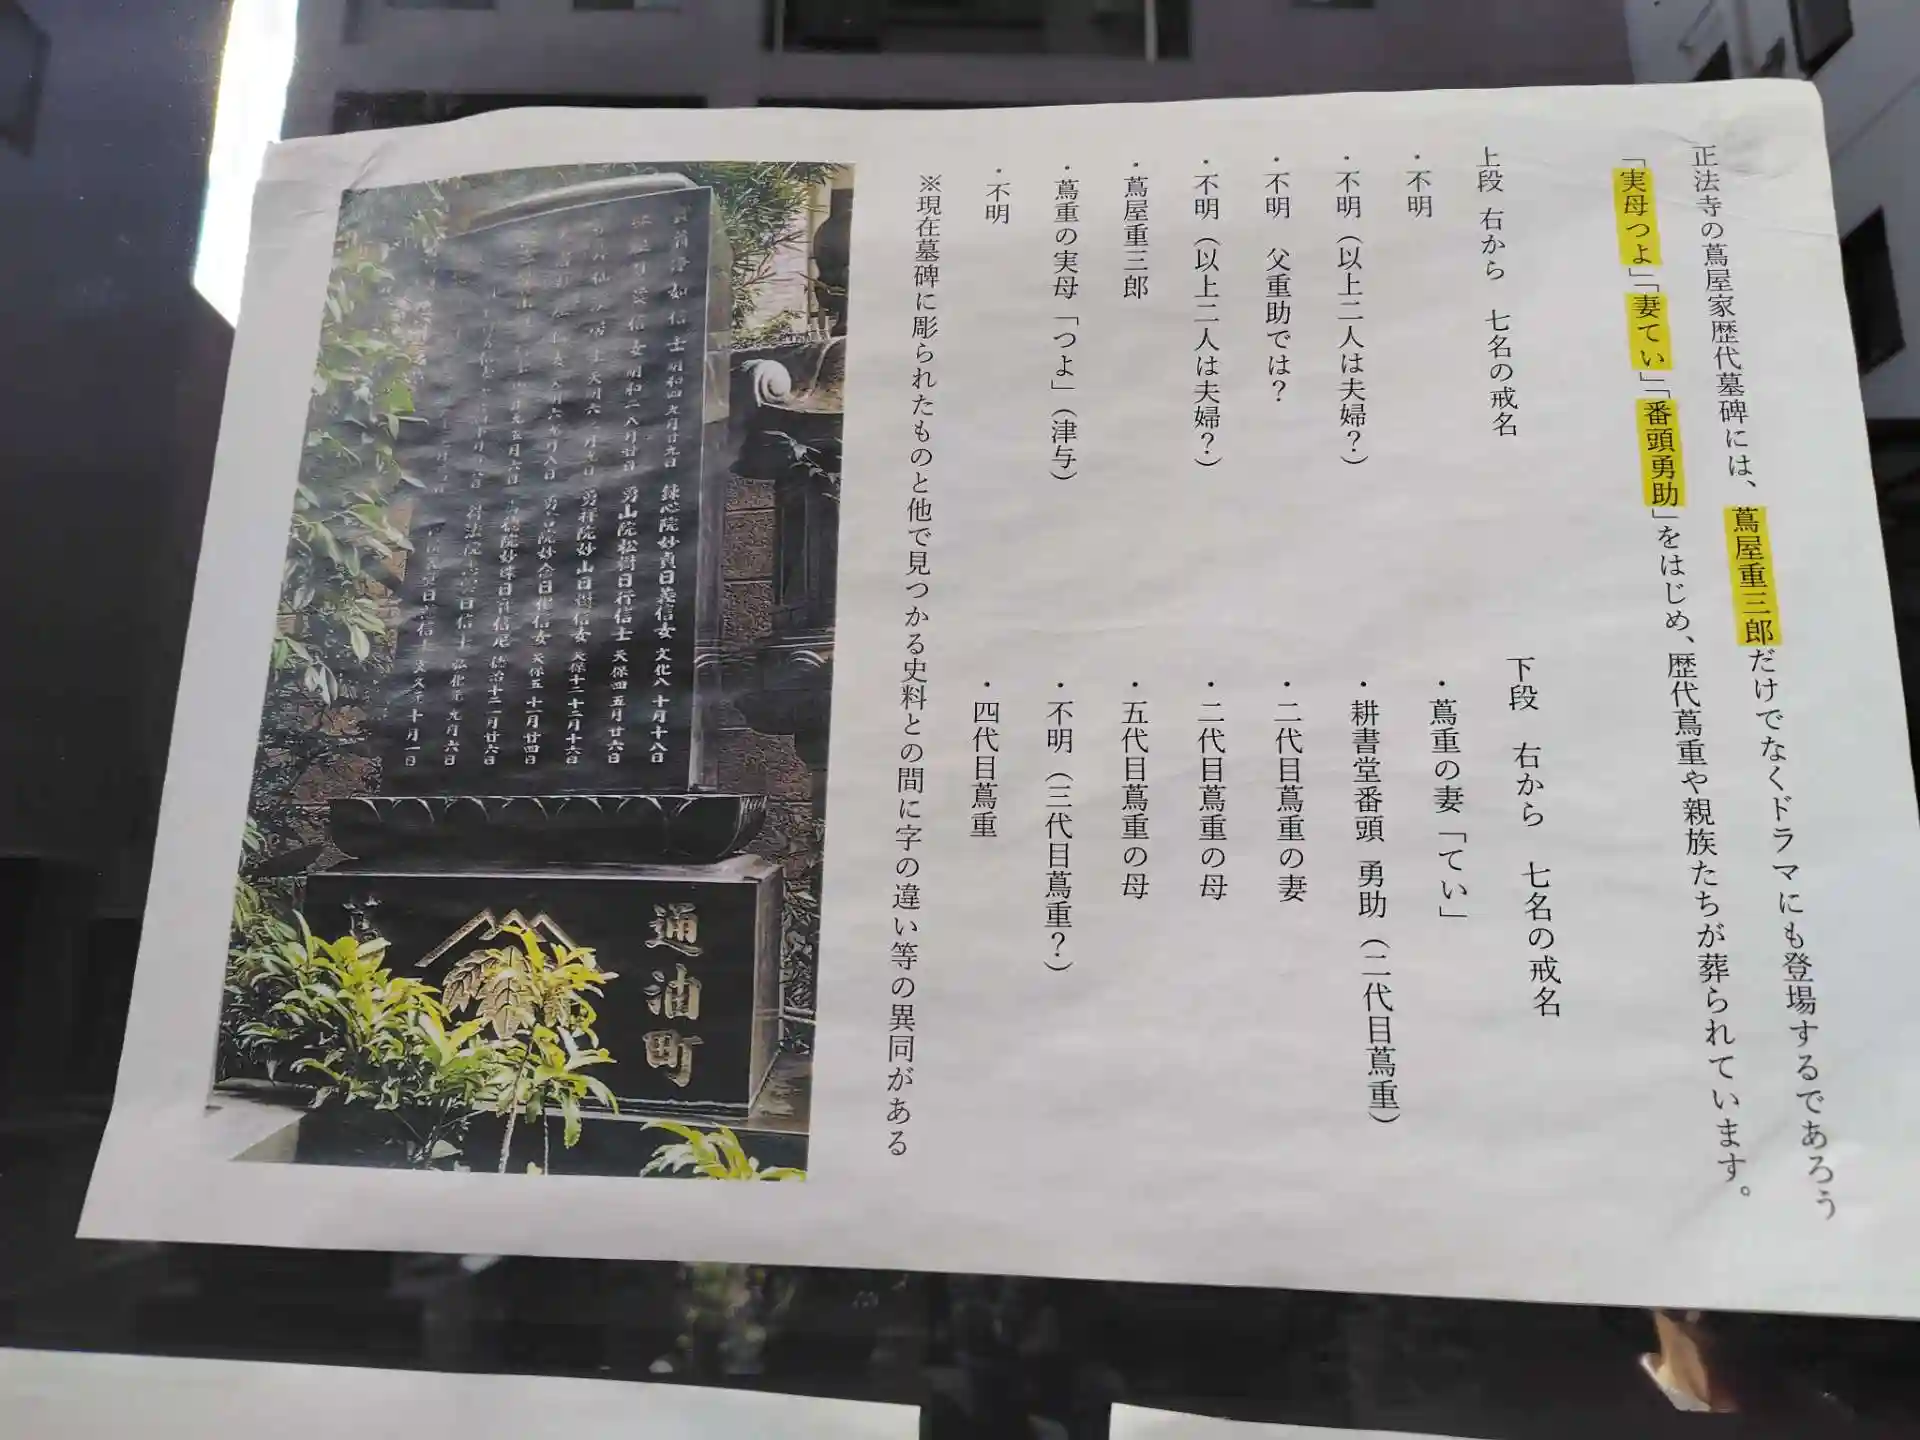 正法寺の蔦屋家歴代墓碑には、蔦屋重三郎だけでなくドラマにも登場するであろう
「実母つよ」「妻てい」「番頭勇助」をはじめ、歴代蔦重や親族たちが葬られています。
上段 右から 七名の戒名
・不明
・不明（以上二人は夫婦？）
・不明 父重助では？
・不明（以上二人は夫婦？）
・蔦屋重三郎
・蔦重の実母「つよ」（津与）
・不明
下段 右から 七名の戒名
・蔦重の妻「てい」
・耕書堂番頭 勇助（二代目蔦重）
・二代目蔦重の妻
・二代目蔦重の母
・五代目蔦重の母
・不明（三代目蔦重？）
・四代目蔦重
※現在墓碑に彫られたものと他で見つかる史料との間に字の違い等の異同がある
錬心院妙貞日義信女 文化八 十月十八日
勇山院松樹日行信士 天保四 五月廿六日
通油町